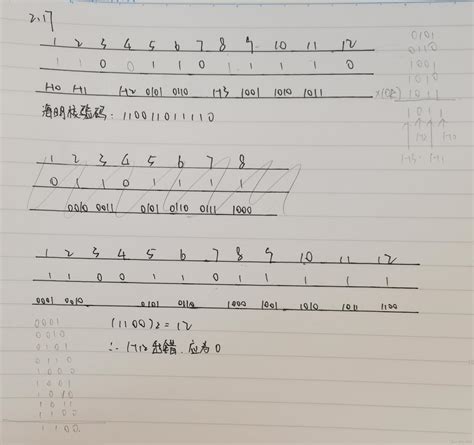 2.17
1 2 3 4 5 6 7 8 9 10 11 12
1 1 0 0 1 1 0 1 1 1 1 0
H0 H1 H2 0101 0110 H3 1001 1010 1011
海明校验码: 110011011110
0101
0110
1001
1010
1011
1011
H3 H2 H1
1 2 3 4 5 6 7 8
0 1 1 0 1 1 1 1
0010 0011 0101 0110 0111 1000
1 2 3 4 5 6 7 8 9 10 11 12
1 1 0 0 1 1 0 1 1 1 1 1
0001 0010 0101 0110 1000 1001 1010 1011 1100
(1100)2 = 12
∴ H12出错. 应为0
0001
0010
0101
0110
1000
1001
1010
1011
1100
1100